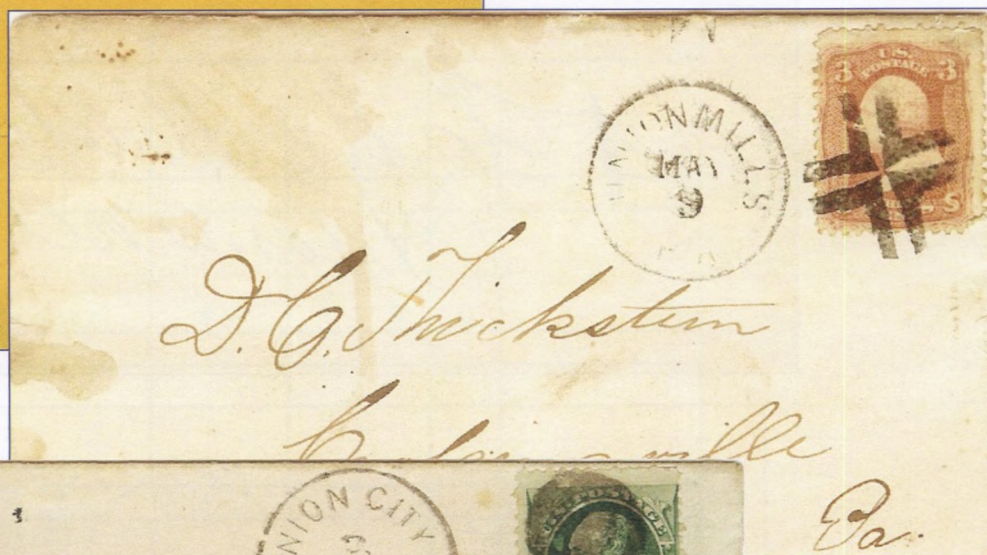 U.S.
POSTAGE
3 3
UNION MILLS
MAY
9
D. C. Thickstun
Pa.
UNION CITY
U.S. POSTAGE